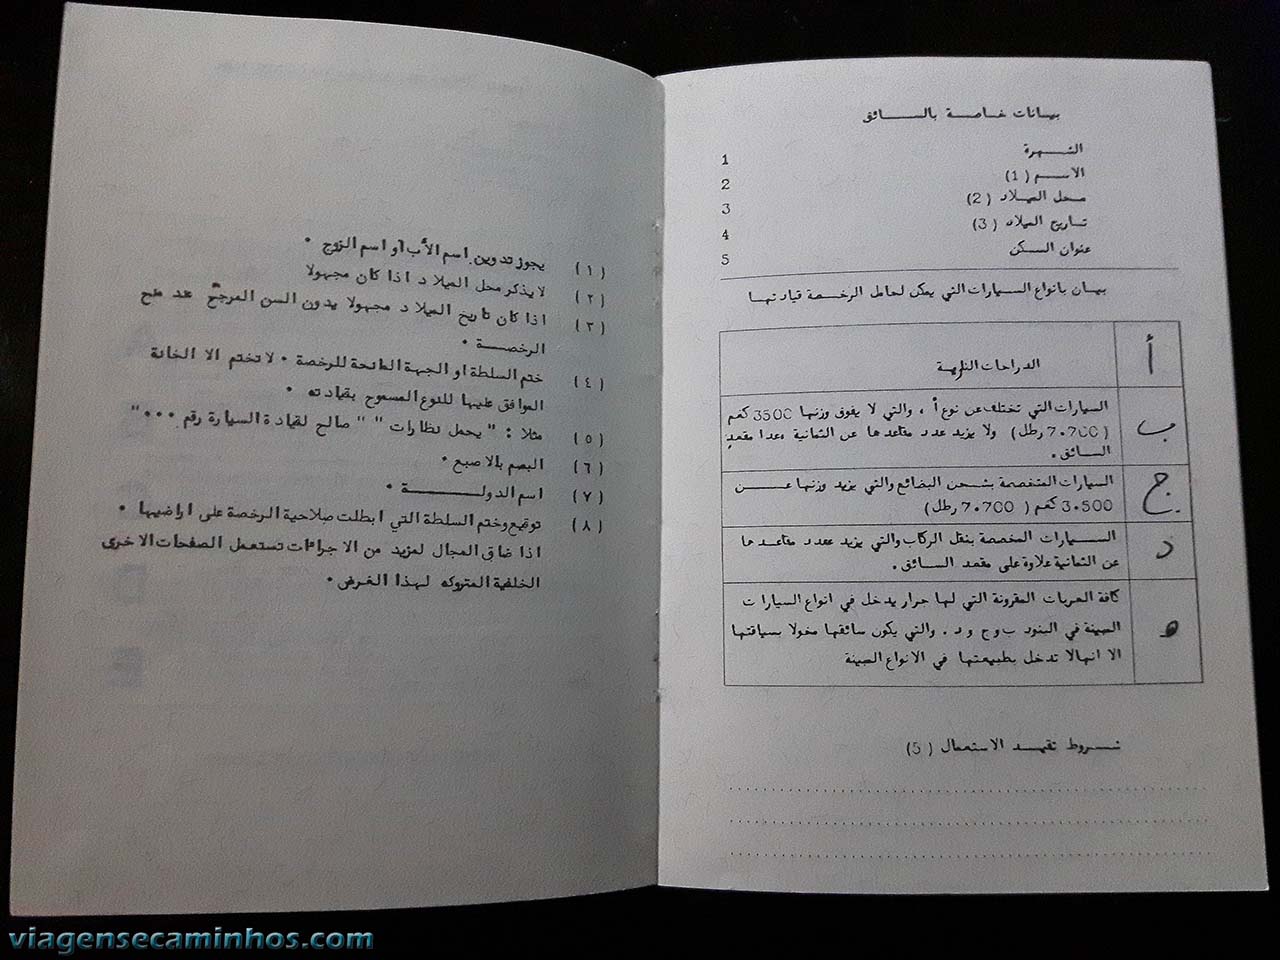 بيانات خاصة بالسائق
الشهرة 1
الاسم (1) 2
محل الميلاد (2) 3
تاريخ الميلاد (3) 4
عنوان السكن 5
بيان بانواع السيارات التي يمكن لحامل الرخصة قيادتها
أ الدراجات النارية
السيارات التي تختلف عن نوع أ ، والتي لا يفوق وزنها 3500 كغم
ب (7.700 رطل) ولا يزيد عدد مقاعدها عن الثمانية معدا مقعد
السائق .
السيارات المتخصصة بشحن البضائع والتي يزيد وزنها عن
ج 3.500 كغم (7.700 رطل)
السيارات المخصصة بنقل الركاب والتي يزيد عدد مقاعدها
د عن الثمانية علاوة على مقعد السائق .
كافة العربات المقرونة التي لها جرار يدخل في انواع السيارات
ه المبينة في البنود ب و ج و د . والتي يكون سائقها مخولا بسياقتها
الا انها لا تدخل بطبيعتها في الانواع المبينة
شروط تقييد الاستعمال (5)
(١) يجوز تدوين اسم الأب أو اسم الزوج .
(٢) لا يذكر محل الميلاد اذا كان مجهولا
(٣) اذا كان تاريخ الميلاد مجهولا يدون السن المرجح عند منح
الرخصة .
(٤) ختم السلطة او الجهة المانحة للرخصة . لا تختم الا الخانة
الموافق عليها للنوع المسموح بقيادته .
(٥) مثلا : " يحمل نظارات " " صالح لقيادة السيارة رقم ..."
(٦) البصم بالاصبع .
(٧) اسم الدولة .
(٨) توقيع وختم السلطة التي ابطلت صلاحية الرخصة على اراضيها .
اذا ضاق المجال لمزيد من الاجراءات تستعمل الصفحات الاخرى
الخلفية المتروكه لهذا الغرض .
viagensecaminhos.com